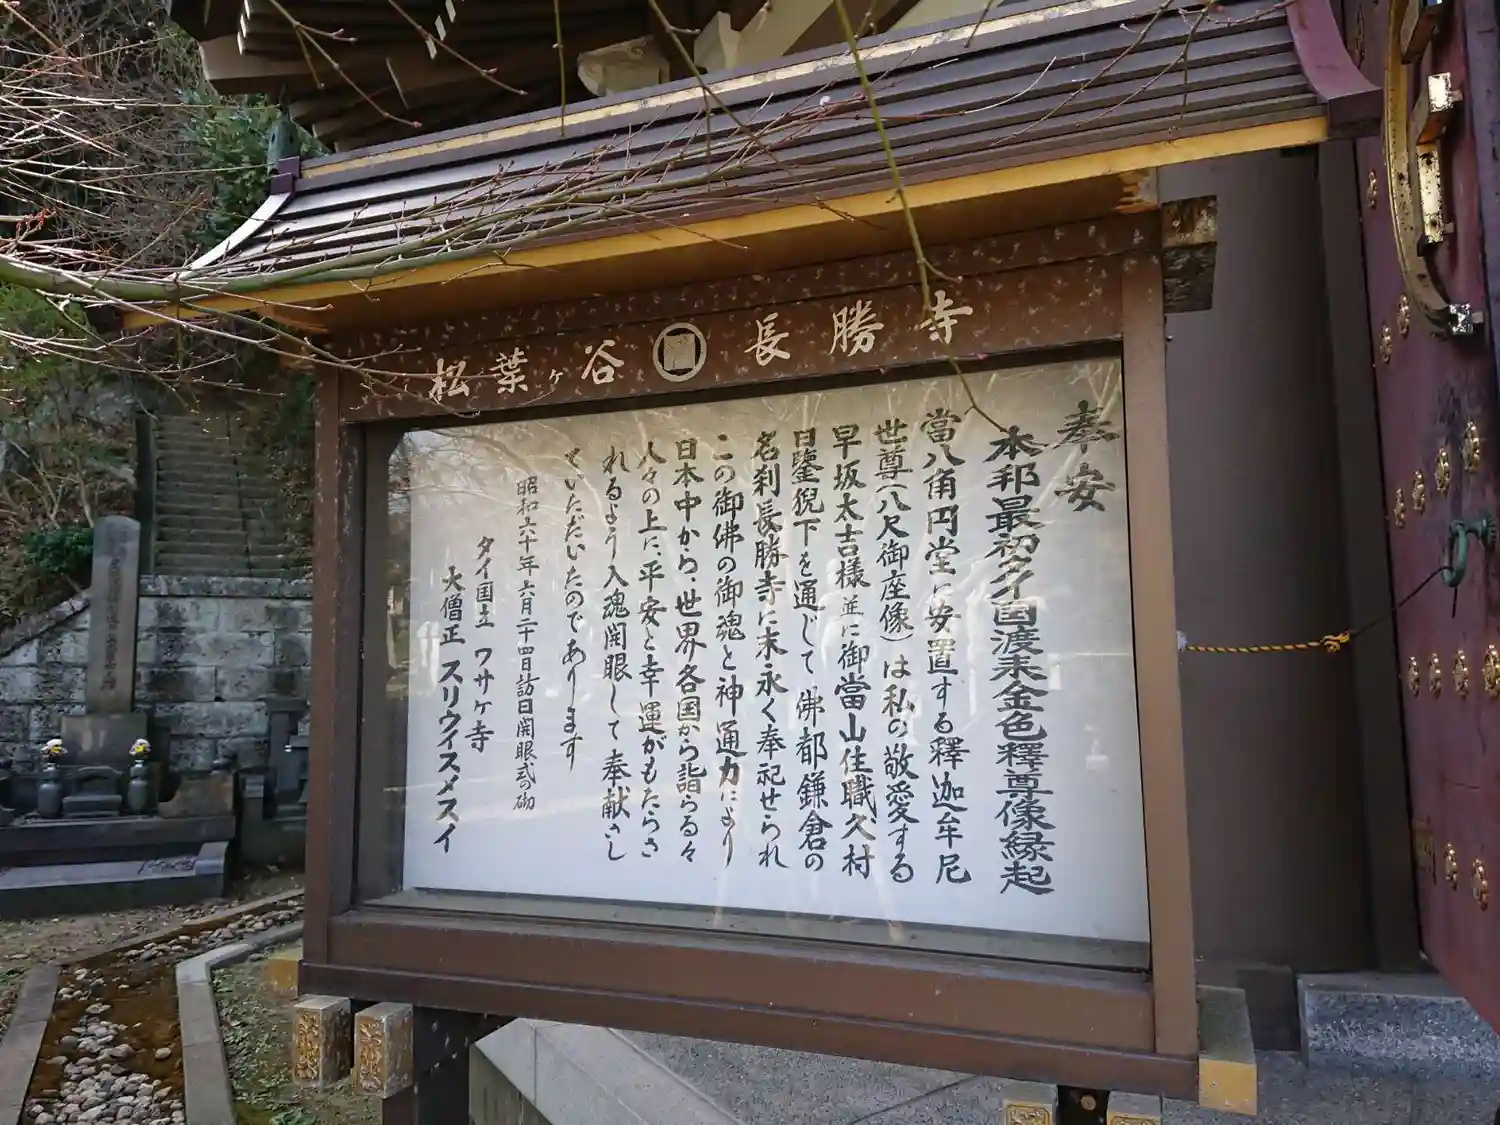 松葉ヶ谷 長勝寺
奉安
本邦最初タイ国渡来金色釋尊像縁起
當八角円堂に安置する釋迦牟尼
世尊（八尺御座像）は私の敬愛する
早坂太吉様並に御當山住職久村
日鑒猊下を通じて佛都鎌倉の
名刹長勝寺に末永く奉祀せられ
この御佛の御魂と神通力により
日本中から、世界各国から詣らる々
人々の上に、平安と幸運がもたらさ
れるよう入魂開眼して奉献さし
ていただいたのであります
昭和六十年六月二十四日訪日開眼式の砌
タイ国立 ワサケ寺
大僧正 スリウイスメスイ